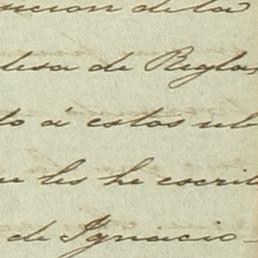 ucion de la
lesa de Regla,
to á estos ul
ue les he escrit
de Ignacio